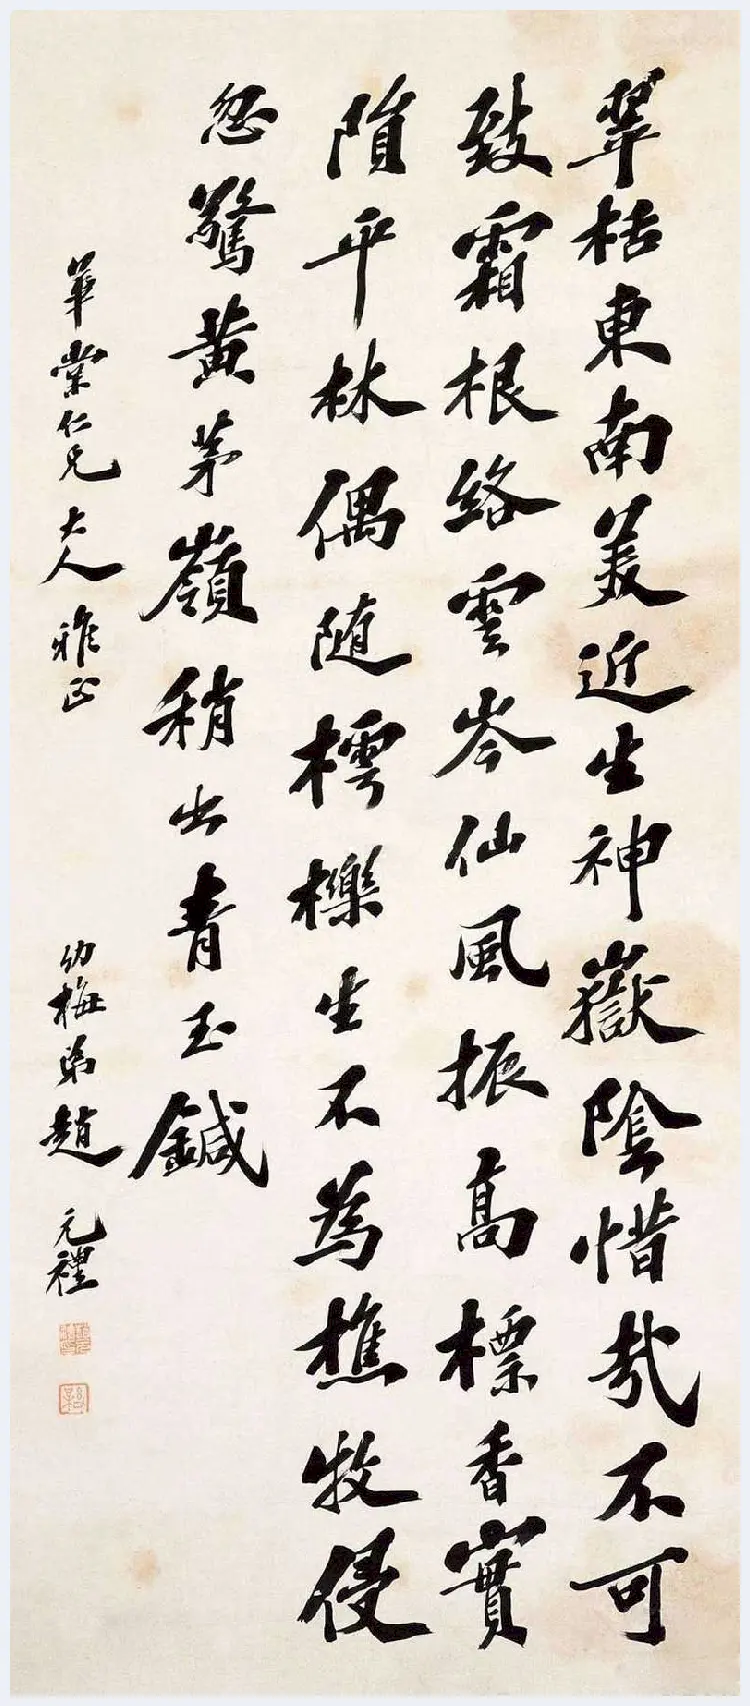 翠栝東南美近生神嶽陰惜哉不可
致霜根絡雲岑仙風振高標香實
隕平林偶随樗櫟生不為樵牧侵
忽驚黄茅嶺稍出青玉鍼
華棠仁兄大人雅正
幼梅弟趙元禮